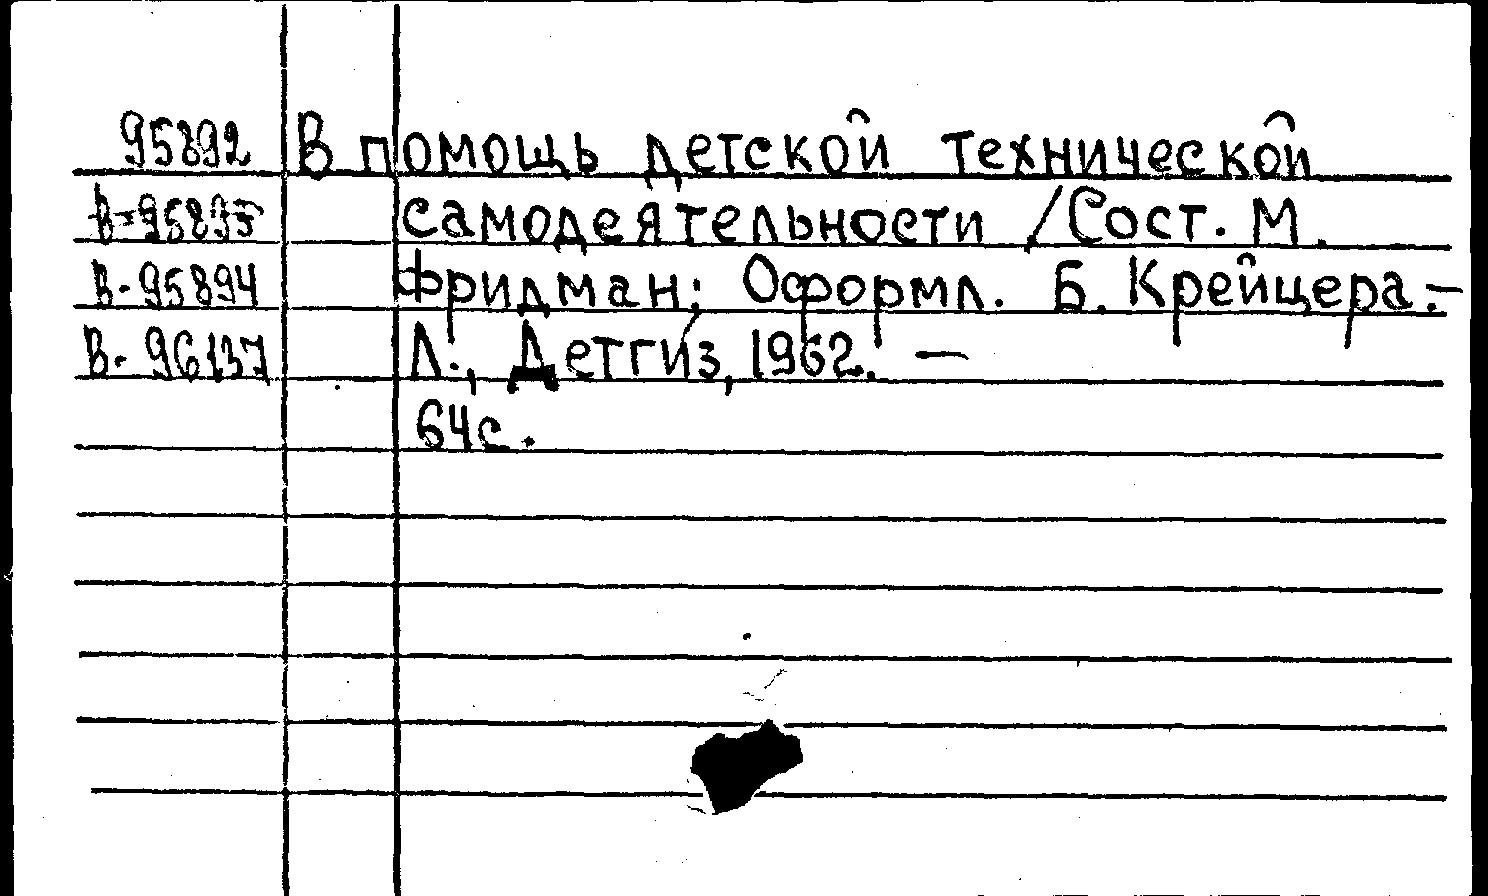 95892 В помощь детской технической
самодеятельности / Сост. М.
В-95894 Фридман; Оформл. Б. Крейцера.-
В-96137 Л., Детгиз, 1962. —
64с.